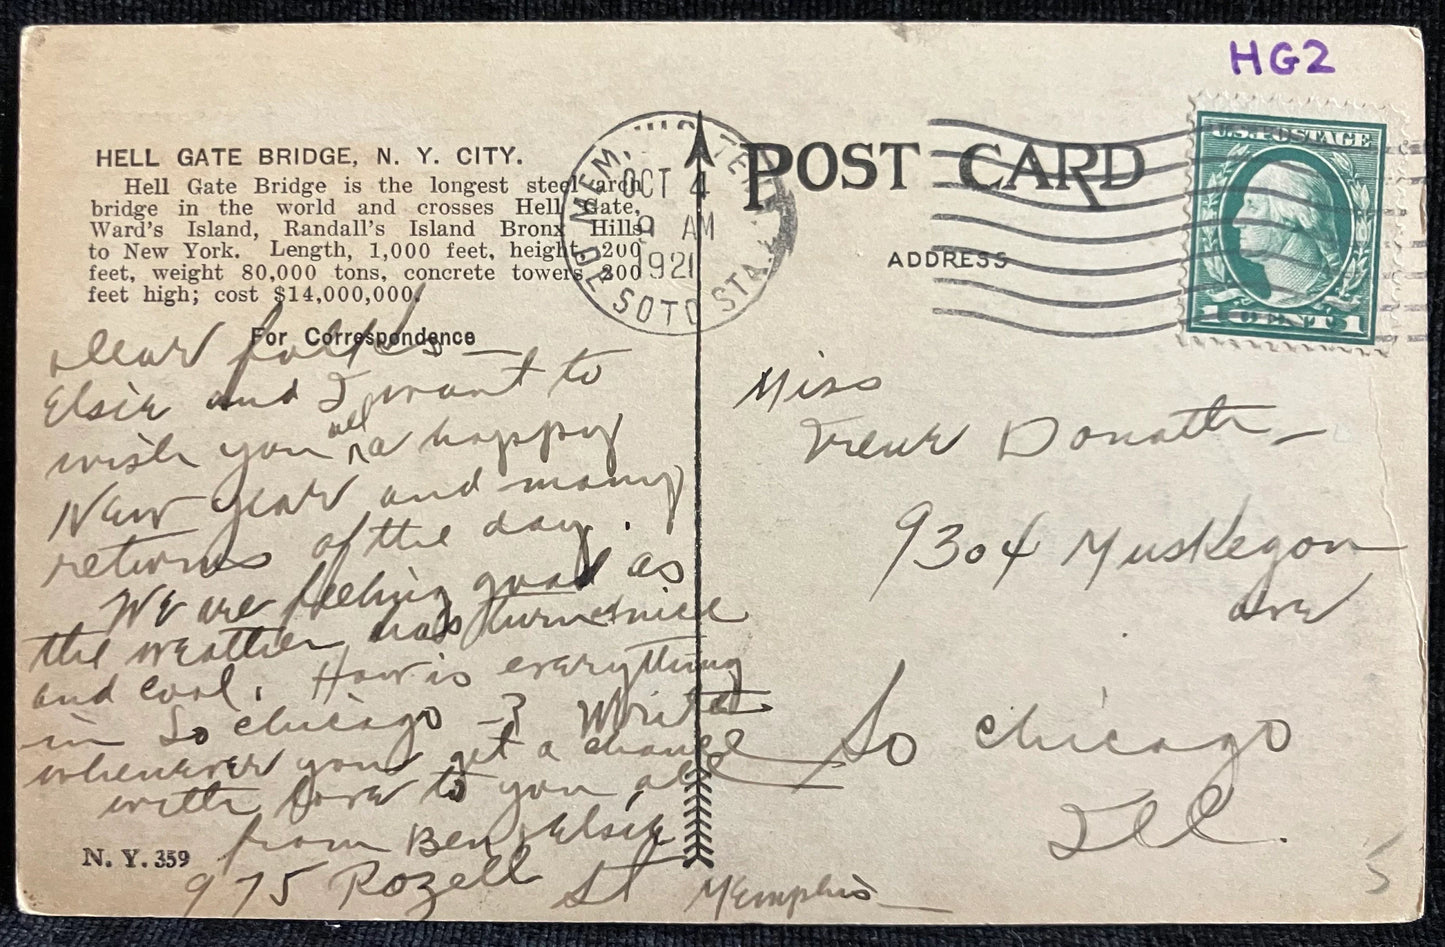 HG2
HELL GATE BRIDGE, N. Y. CITY.
Hell Gate Bridge is the longest steel arch
bridge in the world and crosses Hell Gate,
Ward's Island, Randall's Island Bronx Hills
to New York. Length, 1,000 feet, height 200
feet, weight 80,000 tons, concrete towers 200
feet high; cost $14,000,000.
For Correspondence
Dear folks —
Elsie and I want to
wish you all a happy
New Year and many
returns of the day.
We are feeling good as
the weather has turned nice
and cool. How is everything
in So Chicago — ? Write
whenever you get a chance
with Love to you all
from Ben Elsie
975 Rozell St Memphis
N. Y. 359
MEM.
OCT 4
9 AM
1921
DE SOTO STA.
POST CARD
ADDRESS
U.S. POSTAGE
1 CENT 1
Miss
Irene Donath
9304 Muskegon
ave
So Chicago
Ill.